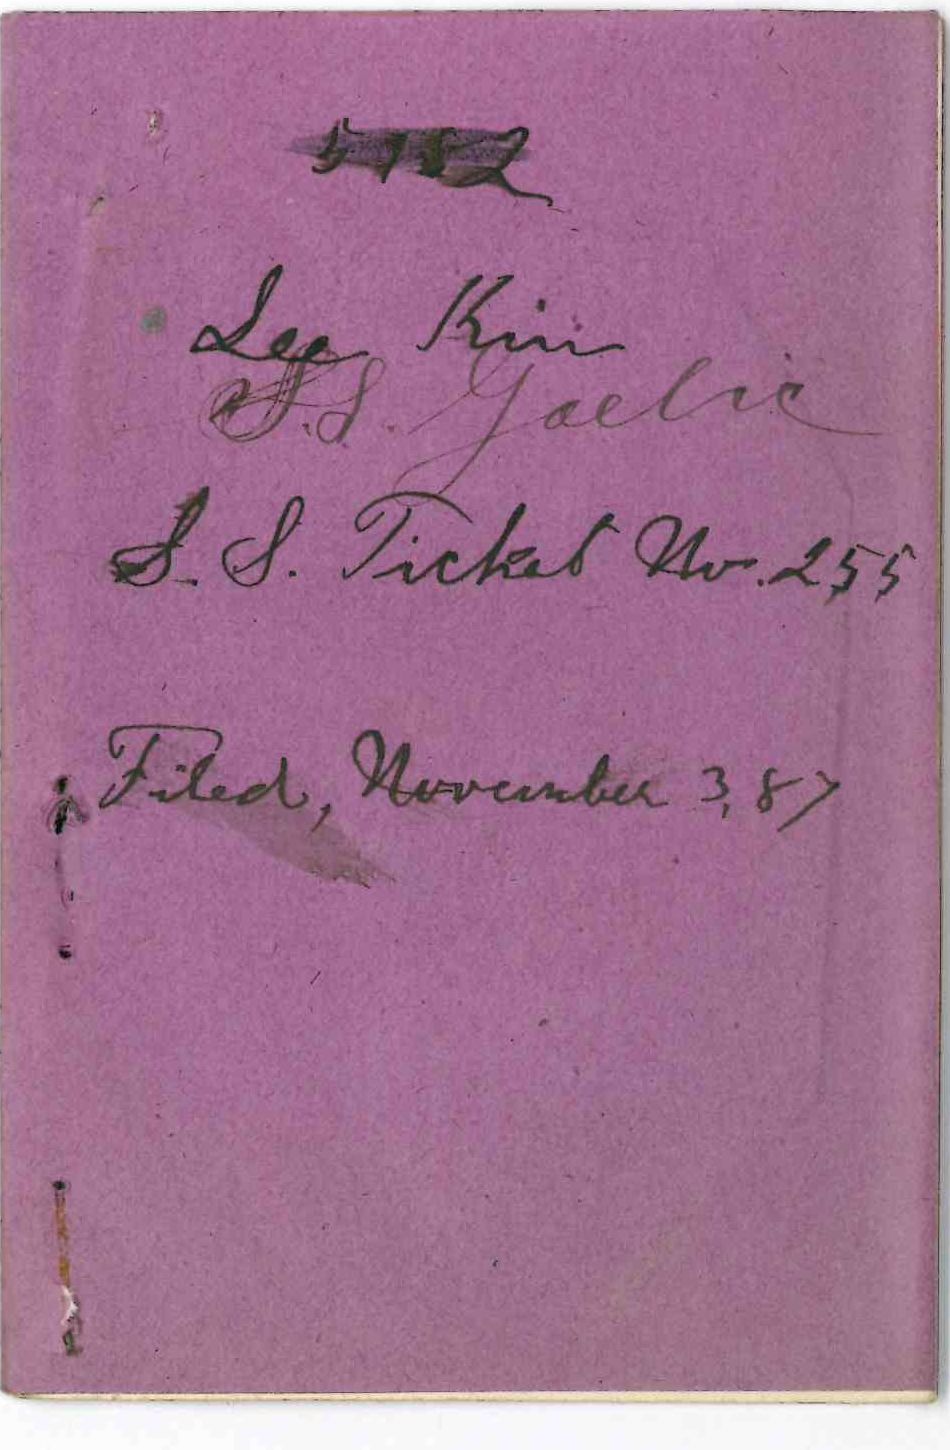 Lee Kim
S.S. Gaelic
S. S. Ticket No. 255
Filed, November 3, 87